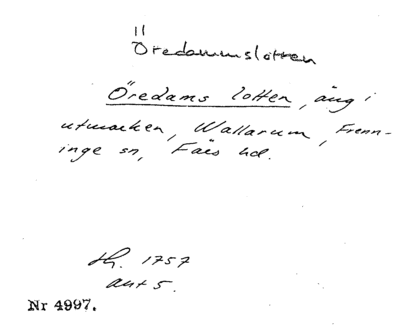 Öredammslotten
Öredams lotten, äng i
utmarken, Wallarum, Frenn-
inge sn, Färs hd.
Lh. 1757
ant 5.
Nr 4997.